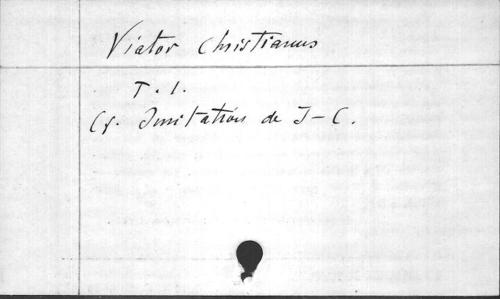 Viator Christianus
T. 1.
Cf. Imitation de J-C.